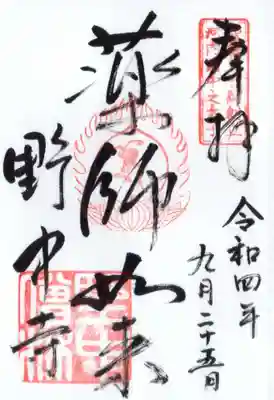 奉拝
令和四年
九月二十五日
薬師如来
野中寺